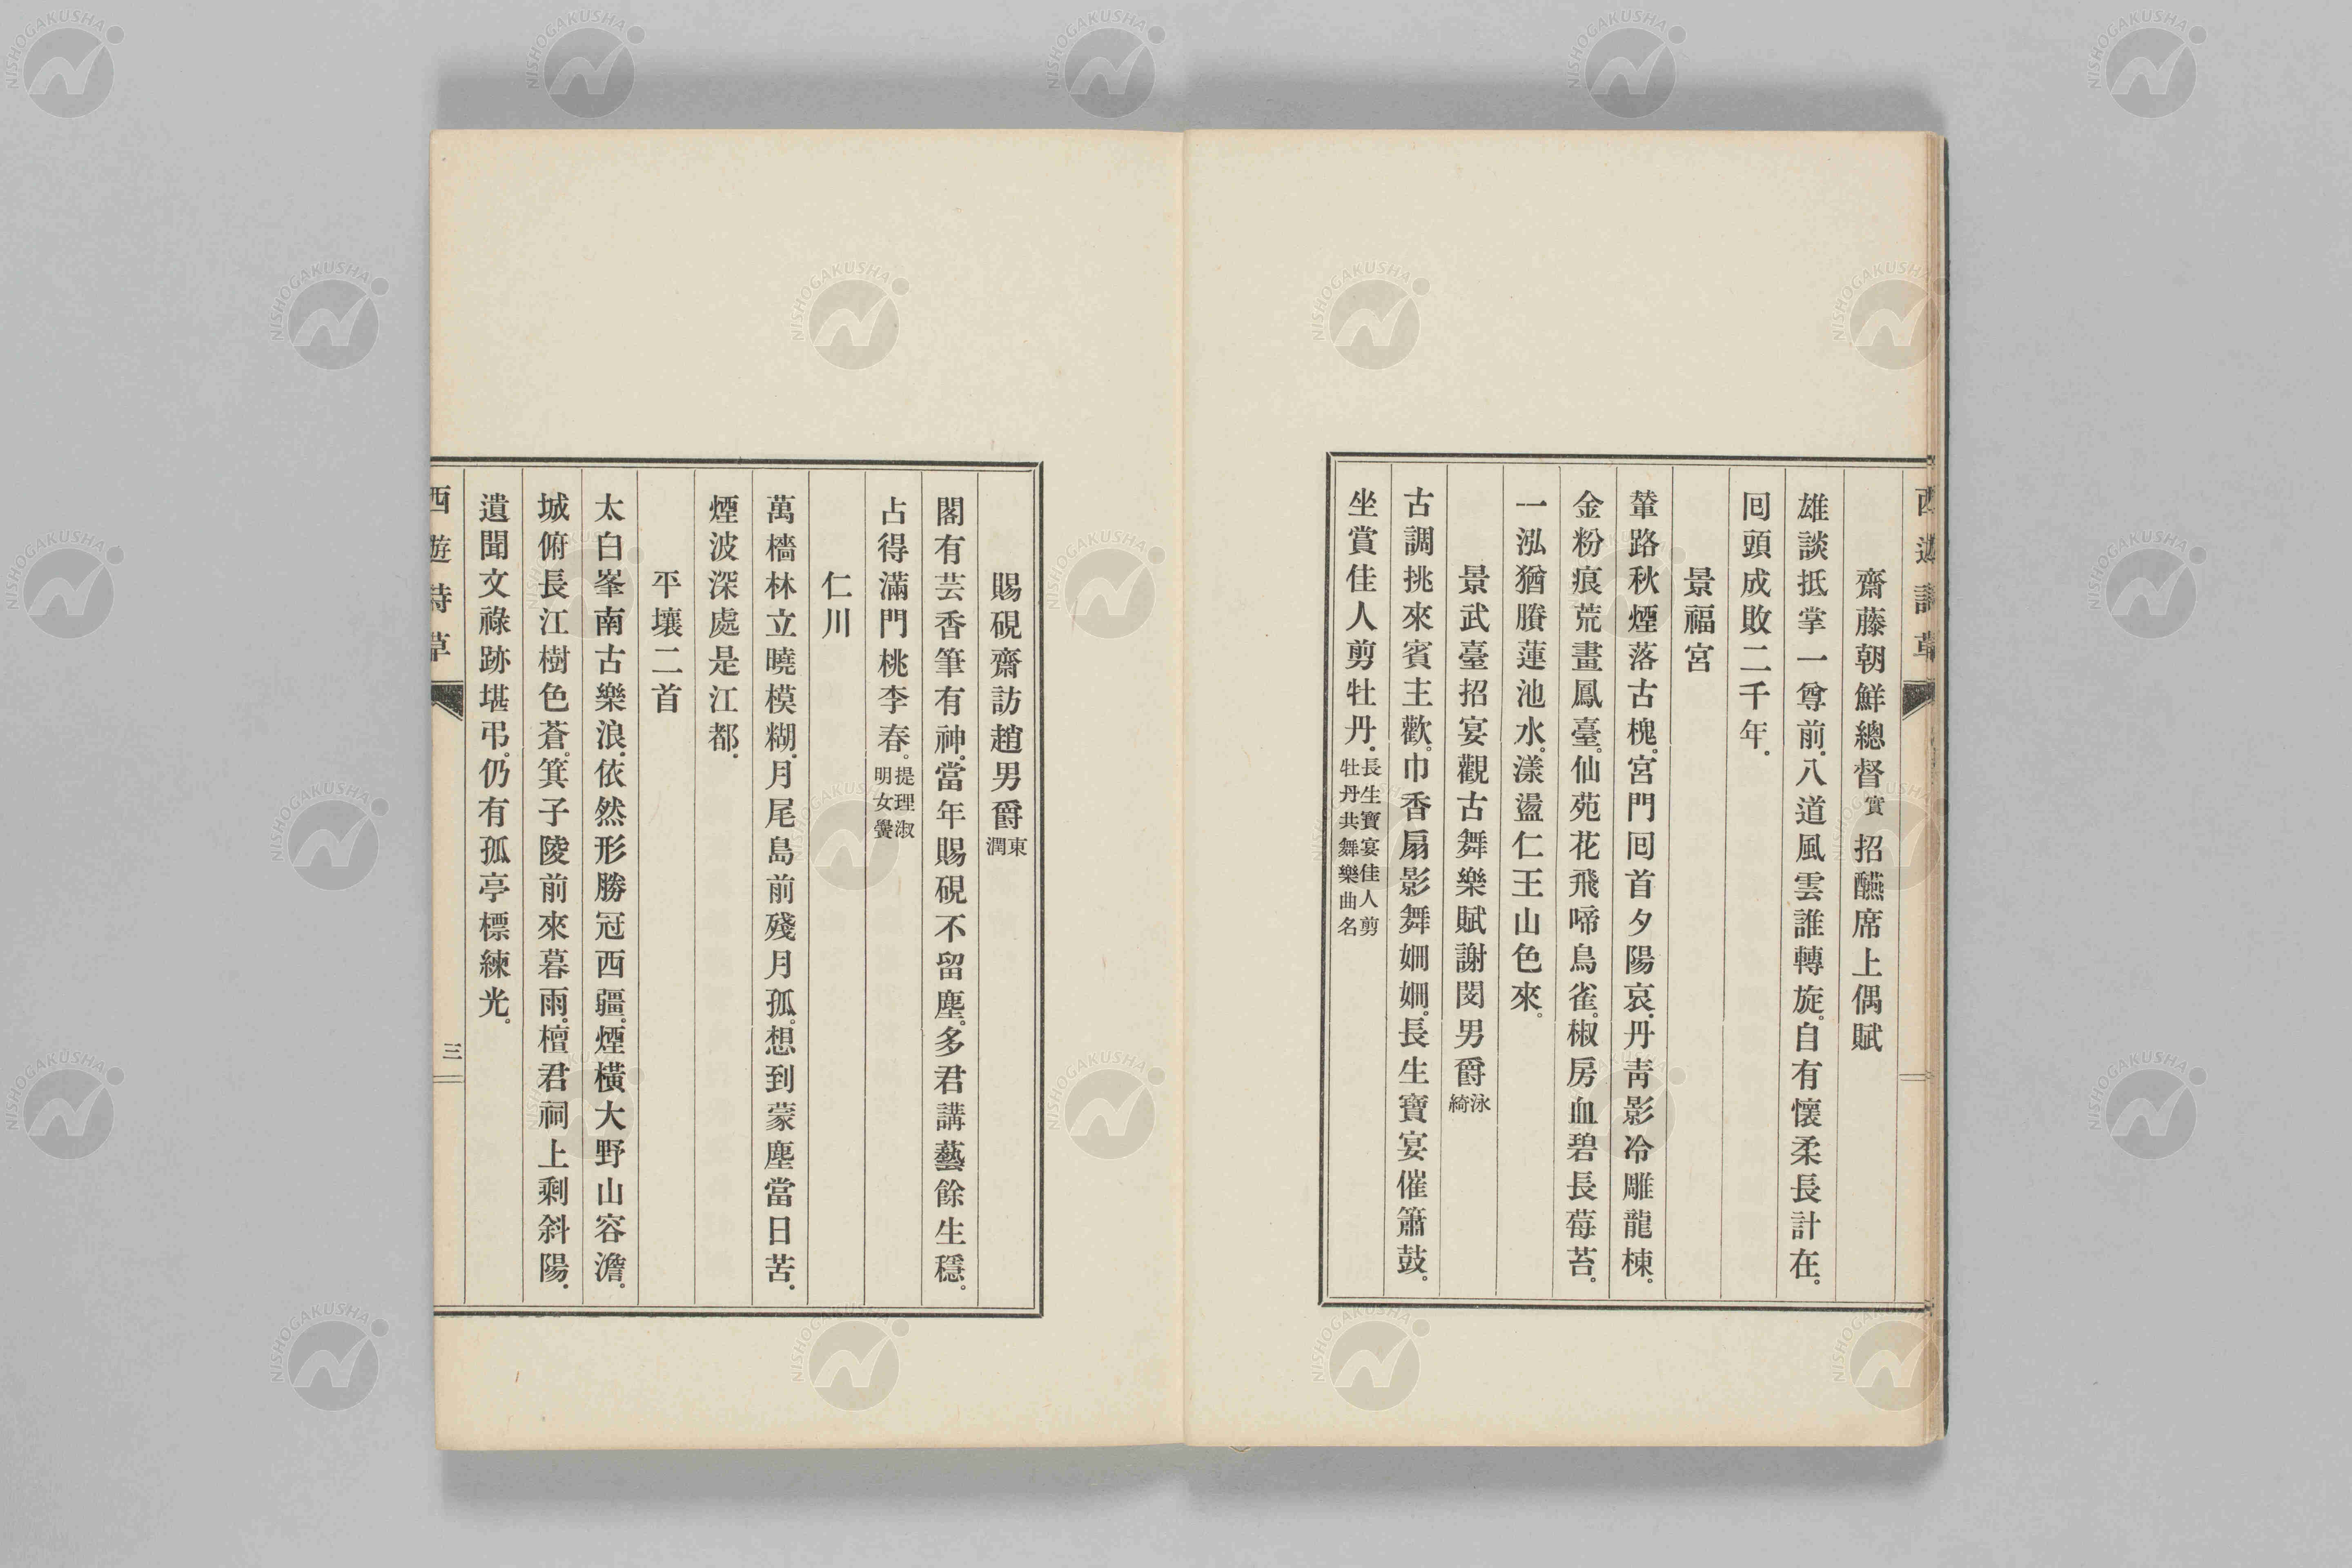 齋藤朝鮮總督實招醼席上偶賦
雄談抵掌一尊前.八道風雲誰轉旋。自有懷柔長計在。
囘頭成敗二千年.
景福宮
輦路秋煙落古槐。宮門囘首夕陽哀.丹靑影冷雕龍棟。
金粉痕荒畫鳳臺。仙苑花飛啼鳥雀。椒房血碧長莓苔。
一泓猶賸蓮池水。漾盪仁王山色來。
景武臺招宴觀古舞樂賦謝閔男爵泳綺
古調挑來賓主歡。巾香扇影舞姍姍。長生寶宴催簫鼓。
坐賞佳人剪牡丹.長生寶宴佳人剪牡丹共舞樂曲名
賜硯齋訪趙男爵東潤
閣有芸香筆有神。當年賜硯不留塵。多君講藝餘生穩。
占得滿門桃李春。提理淑明女黌
仁川
萬檣林立曉模糊.月尾島前殘月孤。想到蒙塵當日苦.
煙波深處是江都.
平壤二首
太白峯南古樂浪.依然形勝冠西疆。煙橫大野山容澹。
城俯長江樹色蒼。箕子陵前來暮雨。檀君祠上剩斜陽.
遺聞文祿跡堪弔。仍有孤亭標練光。
西遊詩草
三
NISHOGAKUSHA